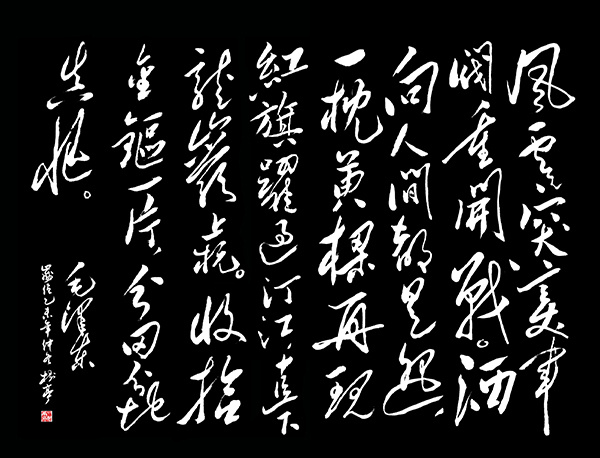 風雲突變軍
閥重開戰。洒
向人間都是怨,
一枕黃粱再現
紅旗躍過汀江,直下
龍巖上杭。收拾
金甌一片,分田分地
真忙。
毛澤東
乙未年仲冬